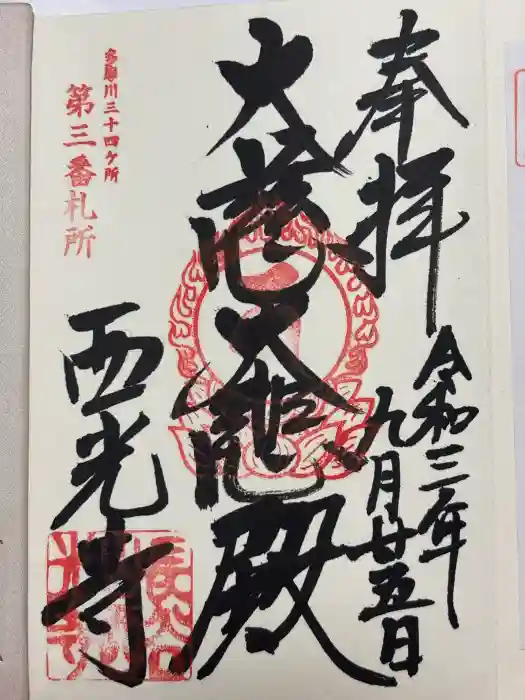 奉拝
令和三年
九月廿五日
大慈大悲殿
西光寺
多摩川三十四ヶ所
第三番札所